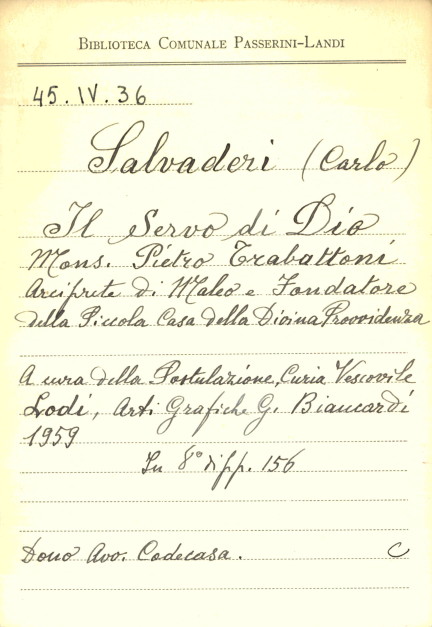 BIBLIOTECA COMUNALE PASSERINI-LANDI
45.IV.36
Salvaderi (Carlo)
Il Servo di Dio
Mons. Pietro Trabattoni
Arciprete di Maleo e Fondatore
della Piccola Casa della Divina Provvidenza
A cura della Postulazione, Curia Vescovile
Lodi, Arti Grafiche G. Biancardi
1959
In 8° di pp. 156
Dono Avv. Codecasa. C